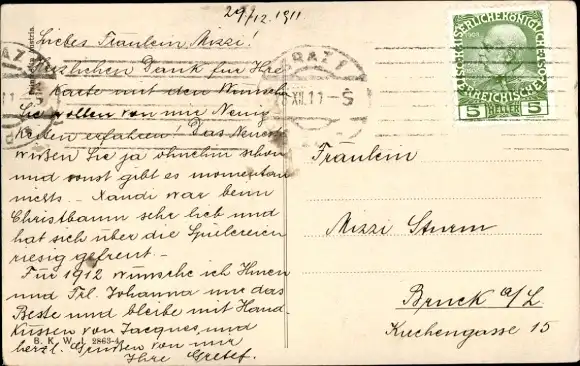 29/12.1911
Liebes Fräulein Mizzi!
Herzlichen Dank für Ihre
Karte mit dem Wunsch
Sie wollen von mir Neuig-
keiten erfahren! Das Neueste
wißen Sie ja ohnehin schon
und sonst gibt es momentan
nichts. – Xandi war beim
Christbaum sehr lieb und
hat sich über die Spielereien
riesig gefreut. –
Für 1912 wünsche ich Ihnen
und Frl. Johanna nur das
Beste und bleibe mit Hand-
küssen von Jacques, und
herzl. Grüßen von mir
Ihre Gretef.
B. K. W. I. 2863-4
GRAZ 1
XII.11-5
KAISERL. KÖNIGL. OESTERREICHISCHE POST
5 HELLER 5
Fräulein
Mizzi Sturm
Bruck a/L.
Kirchengasse 15